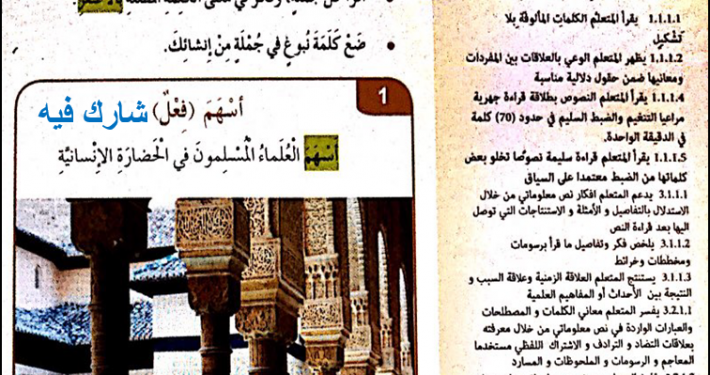 اقرأ كل جملة، وفكر في معنى الكلمة المظللة بالأخضر
• ضَعْ كَلِمَةَ نُبوغٍ في جُمْلَةٍ مِنْ إنْشائِكَ.
1
أسْهَمَ (فِعْلٌ) شارك فيه
أسْهَمَ الْعُلَماءُ الْمُسْلِمونَ في الْحَضارَةِ الإنْسانِيَّةِ
1.1.1.1 يقرأ المتعلم الكلمات المألوفة بلا
تشكيل
1.1.1.2 يظهر المتعلم الوعي بالعلاقات بين المفردات
ومعانيها ضمن حقول دلالية مناسبة
1.1.1.4 يقرأ المتعلم النصوص بطلاقة قراءة جهرية
مراعيا التنغيم والضبط السليم في حدود (70) كلمة
في الدقيقة الواحدة.
1.1.1.5 يقرأ المتعلم قراءة سليمة نصوصًا تخلو بعض
كلماتها من الضبط معتمدا على السياق
3.1.1.1 يدعم المتعلم افكار نص معلوماتي من خلال
الاستدلال بالتفاصيل و الأمثلة و الاستنتاجات التي توصل
اليها بعد قراءة النص
3.1.1.2 يلخص فكر وتفاصيل ما قرأ برسومات
ومخططات وخرائط
3.1.1.3 يستنتج المتعلم العلاقة الزمنية وعلاقة السبب و
النتيجة بين الأحداث أو المفاهيم العلمية
3.2.1.1 يفسر المتعلم معاني الكلمات و المصطلحات
والعبارات الواردة في نص معلوماتي من خلال معرفته
بعلاقات التضاد و الترادف و الاشتراك اللفظي مستخدما
المعاجم و الرسومات و الملحوظات و المسارد